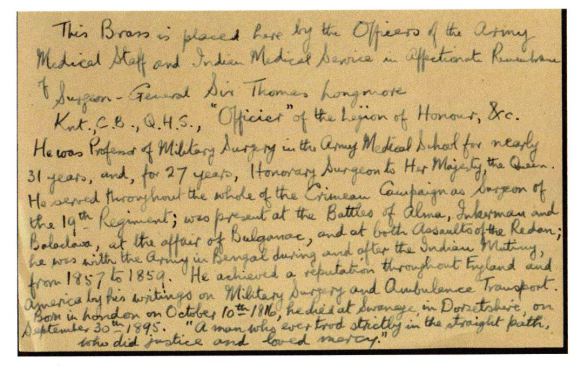 This Brass is placed here by the Officers of the Army
Medical Staff and Indian Medical Service in Affectionate Remembrance
of Surgeon-General Sir Thomas Longmore
Knt., C.B., Q.H.S., "Officier" of the Legion of Honour, &c.
He was Professor of Military Surgery in the Army Medical School for nearly
31 years, and, for 27 years, Honorary Surgeon to Her Majesty, the Queen.
He served throughout the whole of the Crimean Campaign as Surgeon of
the 19th Regiment; was present at the Battles of Alma, Inkerman and
Balaclava, at the affair of Bulganac, and at both Assaults of the Redan;
he was with the Army in Bengal during and after the Indian Mutiny,
from 1857 to 1859. He achieved a reputation throughout England and
America by his writings on Military Surgery and Ambulance Transport.
Born in London on October 10th 1816, he died at Swanage, in Dorsetshire, on
September 30th 1895. "A man who ever trod strictly in the straight path,
who did justice and loved mercy."